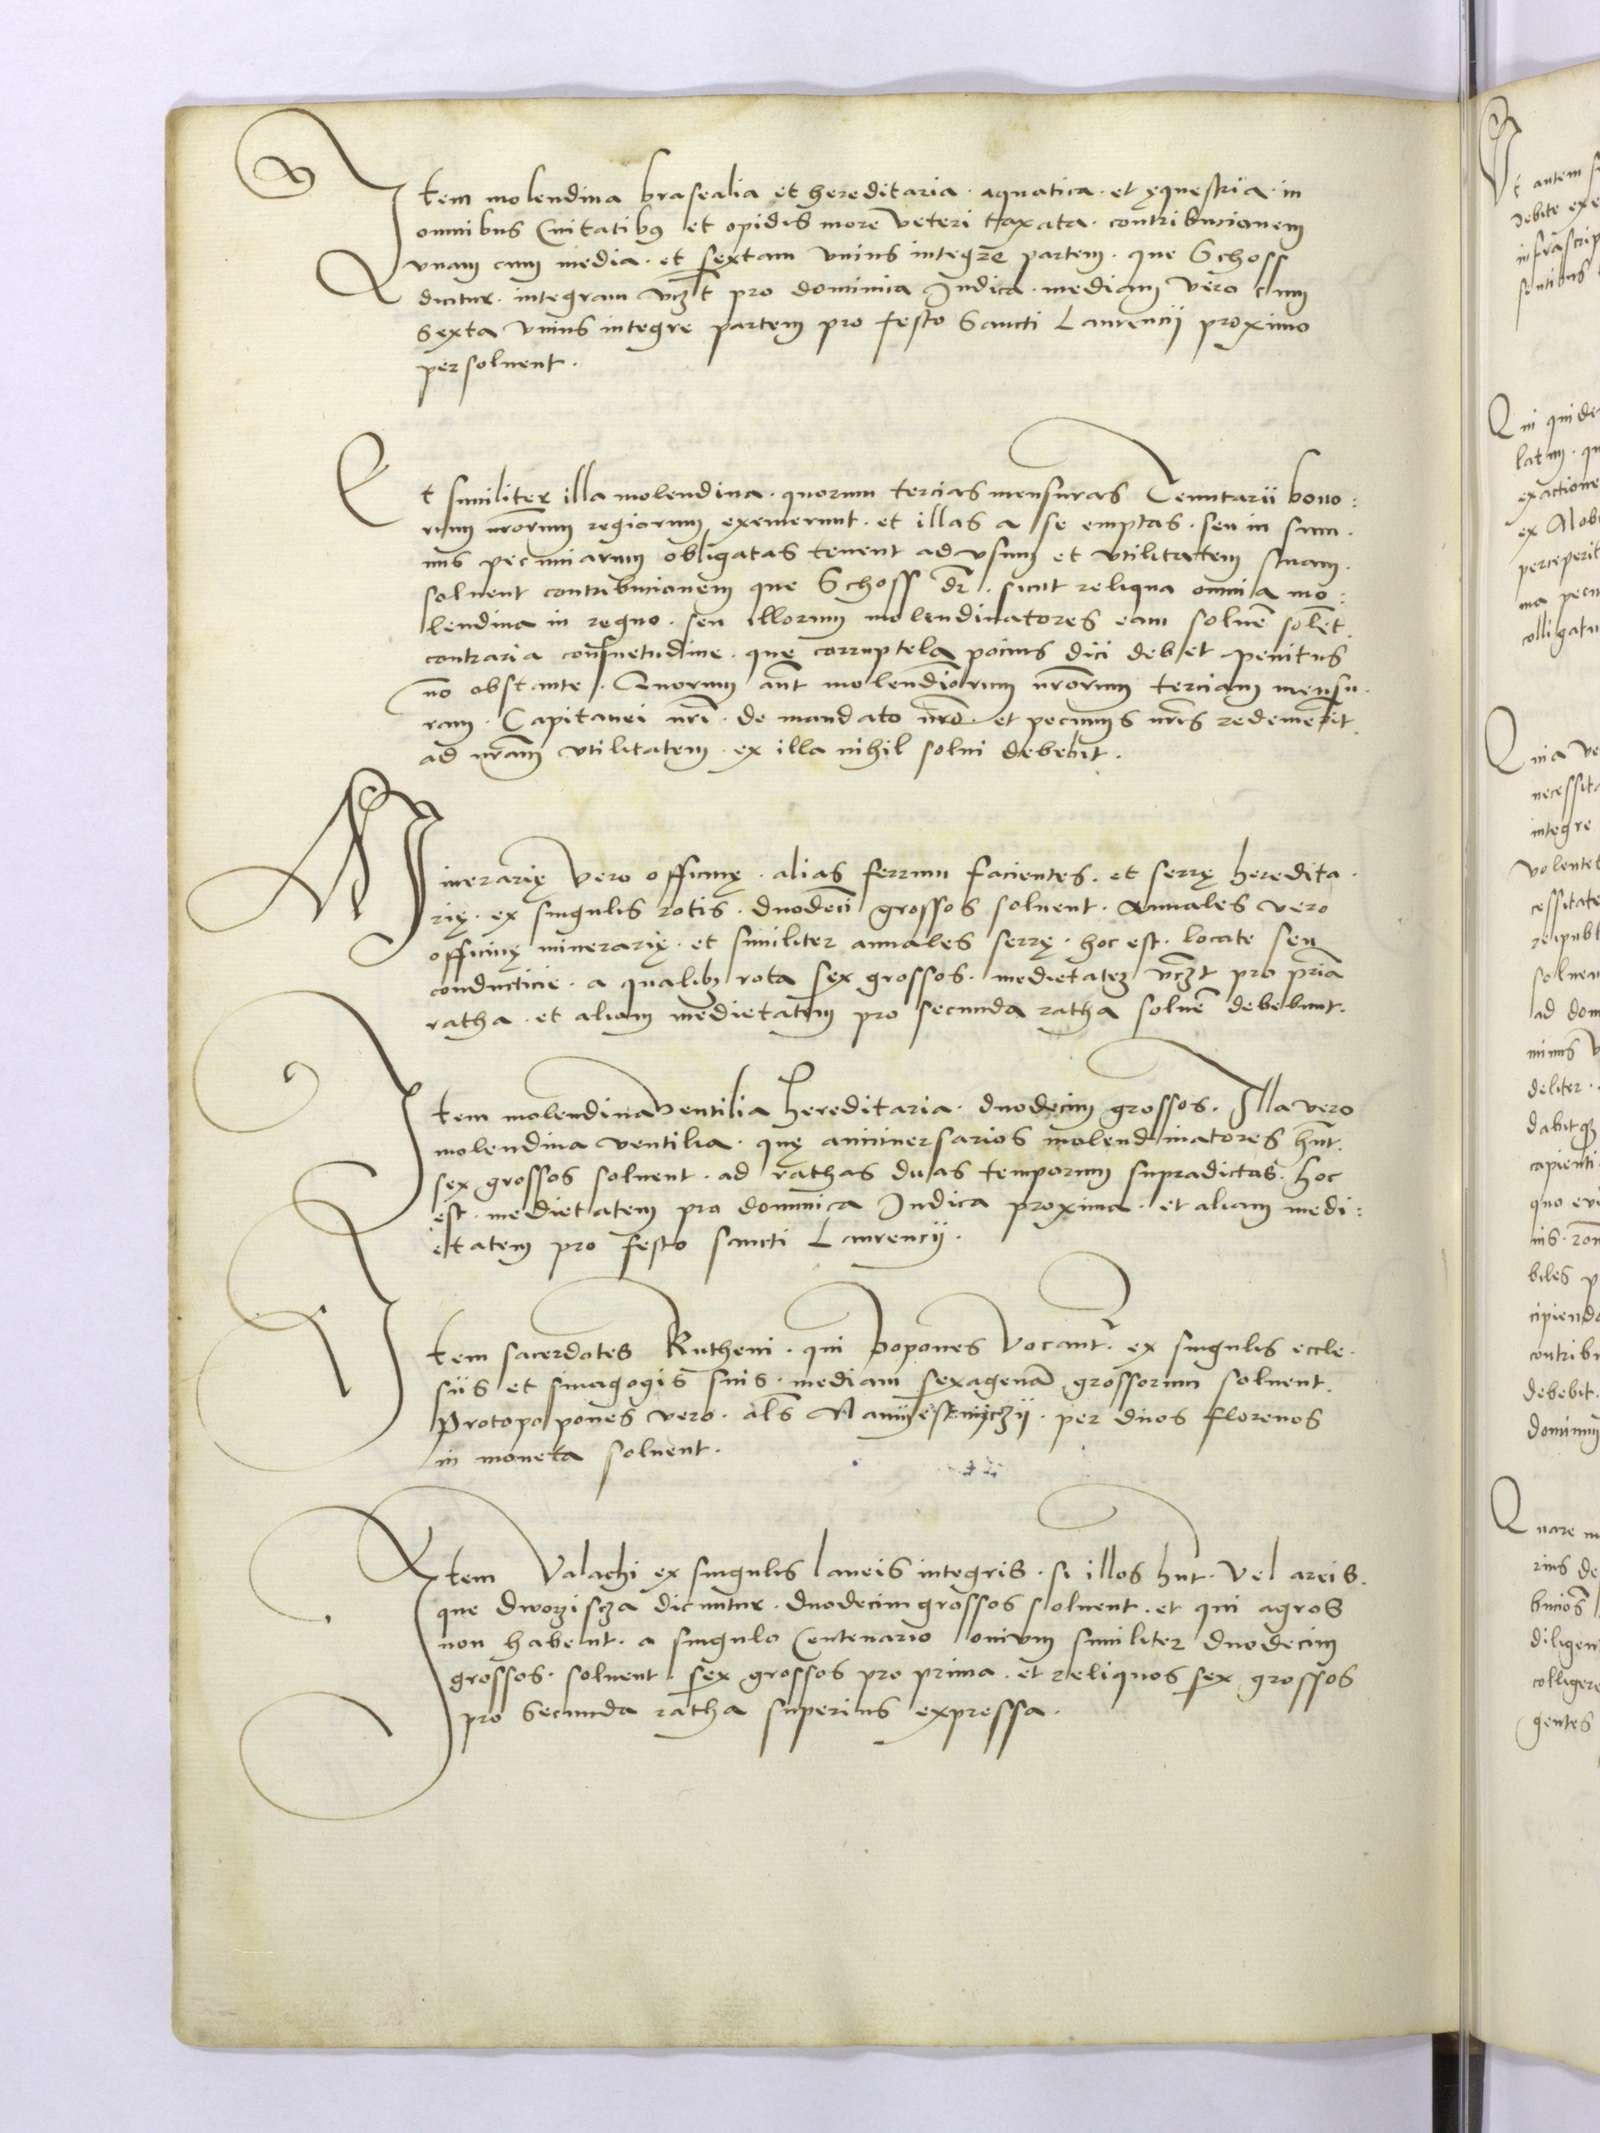 Item molendina brasealia et hereditaria · aquatica · et ęquestria · in
omnibus Civitatibus et opidis more veteri taxata · contribucionem
vnam cum media · et sextam vnius integre partem · que Schoss
dicitur · integram vczt pro dominica Iudica · mediam vero cum
sexta vnius integre partem pro festo Sancti Laurencij proximo
persoluent ·
Et similiter illa molendina · quorum tercias mensuras Tenutarii bono:
rum nrorum regiorum exemerunt · et illas a se emptas · seu in sum·
mis pecuniarum obligatas tenent ad vsum et vtilitatem suam ·
soluent contribucionem que Schoss dr · sicut reliqua omnia mo:
lendina in regno · seu illorum molendinatores eam soluē solēt ·
contraria consuetudine · quę corruptela pocius dici debet penitus
nō obstante · Quorum aūt molendīorum nrorum terciam mensu·
ram · Capitanei nrī · de mandato nrō · et pecuniis nrīs redemerīt
ad nrām vtilitatem · ex illa nihil solui debebit ·
Minerarię vero officinę · alias ferrum facientes · et serrę heredita·
rię · ex singulis rotis · duodeci grossos soluent · Annales vero
officinę minerarię · et similiter annales serrę · hoc est · locate seu
conducticie · a qualibz rota sex grossos · medietatez vczt pro pria
ratha · et aliam medietatem pro secunda ratha soluē debebunt ·
Item molendina ventilia hereditaria · duodecim grossos · Illa vero
molendina ventilia · quę anniuersarios molendinatores hnt ·
sex grossos soluent · ad rathas duas temporum supradictas · hoc
est · medietatem pro dominica Iudica proxima · et aliam medi:
etatem pro festo sancti Laurencij ·
Item sacerdotes Rutheni · qui popones vocantr · ex singulis eccle·
siis et sinagogis suis · mediam sexagenā grossorum soluent ·
Protopopones vero · als Namyestniczij · per duos florenos
in moneta soluent ·
Item Valachi ex singulis laneis integris · si illos hnt · vel areis ·
que dworziscza dicuntur · duodecim grossos soluent · et qui agros
non habent · a singulo Centenario ouium similiter duodecim
grossos · soluent · sex grossos pro prima · et reliquos sex grossos
pro secunda ratha superius expressa ·